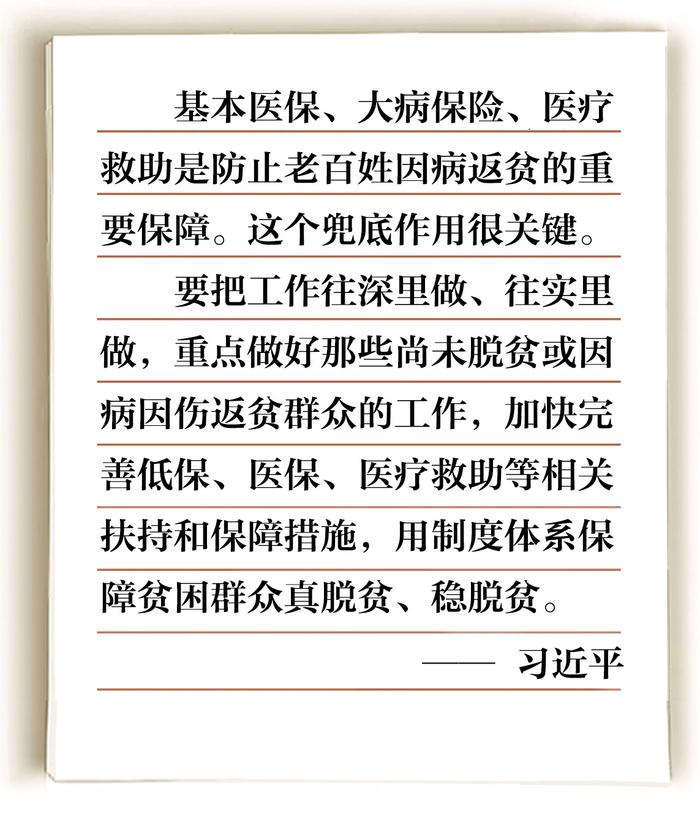 基本医保、大病保险、医疗
救助是防止老百姓因病返贫的重
要保障。这个兜底作用很关键。
要把工作往深里做、往实里
做，重点做好那些尚未脱贫或因
病因伤返贫群众的工作，加快完
善低保、医保、医疗救助等相关
扶持和保障措施，用制度体系保
障贫困群众真脱贫、稳脱贫。
—— 习近平